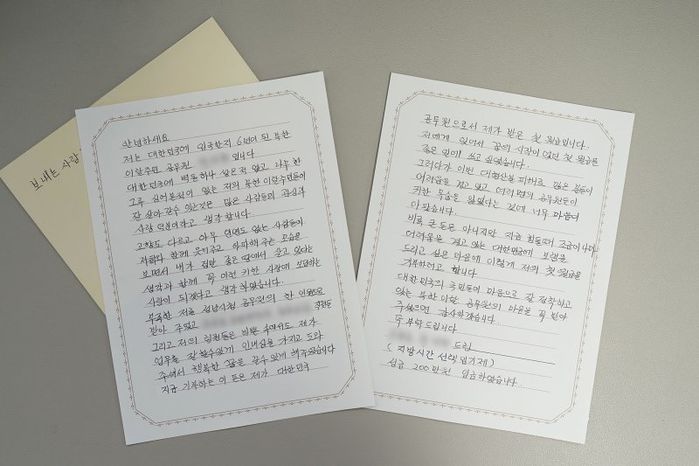 보내는 사람
안녕하세요
저는 대한민국에 입국한지 6년이 된 북한
이탈주민 공무원 입니다
대한민국에 변동하나 살은적 없고 나누한
그루 심어본적이 없는 저희 북한이탈주민들이
잘 살아갈수 있는것은 많은 사람들의 관심과
사랑 덕분이라고 생각합니다.
고향도 다르고 아무 인연도 없는 사람들이
저희와 함께 웃기주고 아파해 주는 모습을
보면서 내가 정말 좋은 땅에서 살고 있다는
생각과 함께 꼭 이런 귀한 사랑에 보답하는
사람이 되겠다고 생각하였습니다.
부족한 저를 성남시청 공무원의 한 인원으로
받아 주었고 주무관님
그리고 저의 팀원들은 바쁜 속에서도 제가
업무를 잘 할수있게 인내심을 가지고 도와
주어서 행복한 꿈을 꿀수 있게 해주었습니다
지금 기부하는 이 돈은 제가 대한민국
공무원으로서 제가 받은 첫 월급입니다.
저에게 있어서 꿈의 시작이 였던 첫 월급은
좋은 일에 쓰고 싶었습니다.
그러다가 이번 대형산불 피해로 많은 분들이
어려움을 겪고 있고 여러명의 공무원분들이
귀한 목숨을 잃었다는 것에 너무 마음이
아팠습니다.
비록 큰 돈은 아니지만 지금 힘들때 조금이나마
어려움을 겪고 있는 대한민국에 보탬을
드리고 싶은 마음에 이렇게 저의 첫 월급을
기부하려고 합니다.
대한민국의 국민들의 마음으로 잘 정착하고
있는 북한이탈 공무원의 마음을 꼭 받아
주셨으면 감사하겠습니다.
꼭 부탁드립니다
드림
(지방시간선택임기제)
성금 200만원 입금하였습니다.